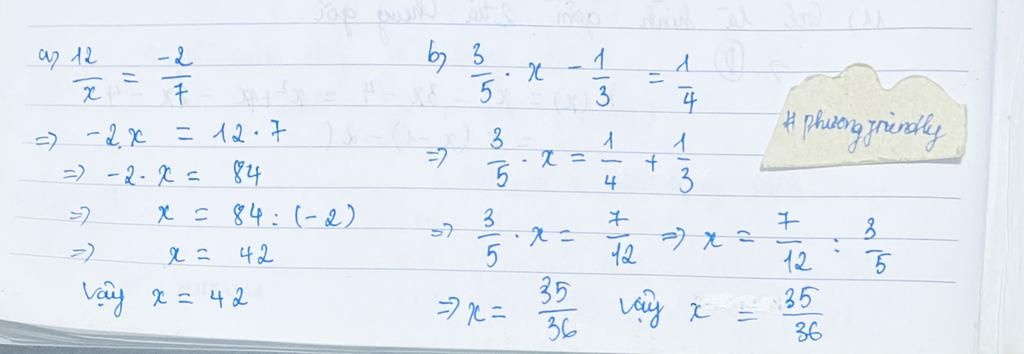 a) 12/x = -2/7
=> -2.x = 12.7
=> -2.x = 84
=> x = 84 : (-2)
=> x = 42
Vậy x = 42
b) 3/5 . x - 1/3 = 1/4
=> 3/5 . x = 1/4 + 1/3
=> 3/5 . x = 7/12 => x = 7/12 : 3/5
=> x = 35/36 Vậy x = 35/36
# phuongfriendly